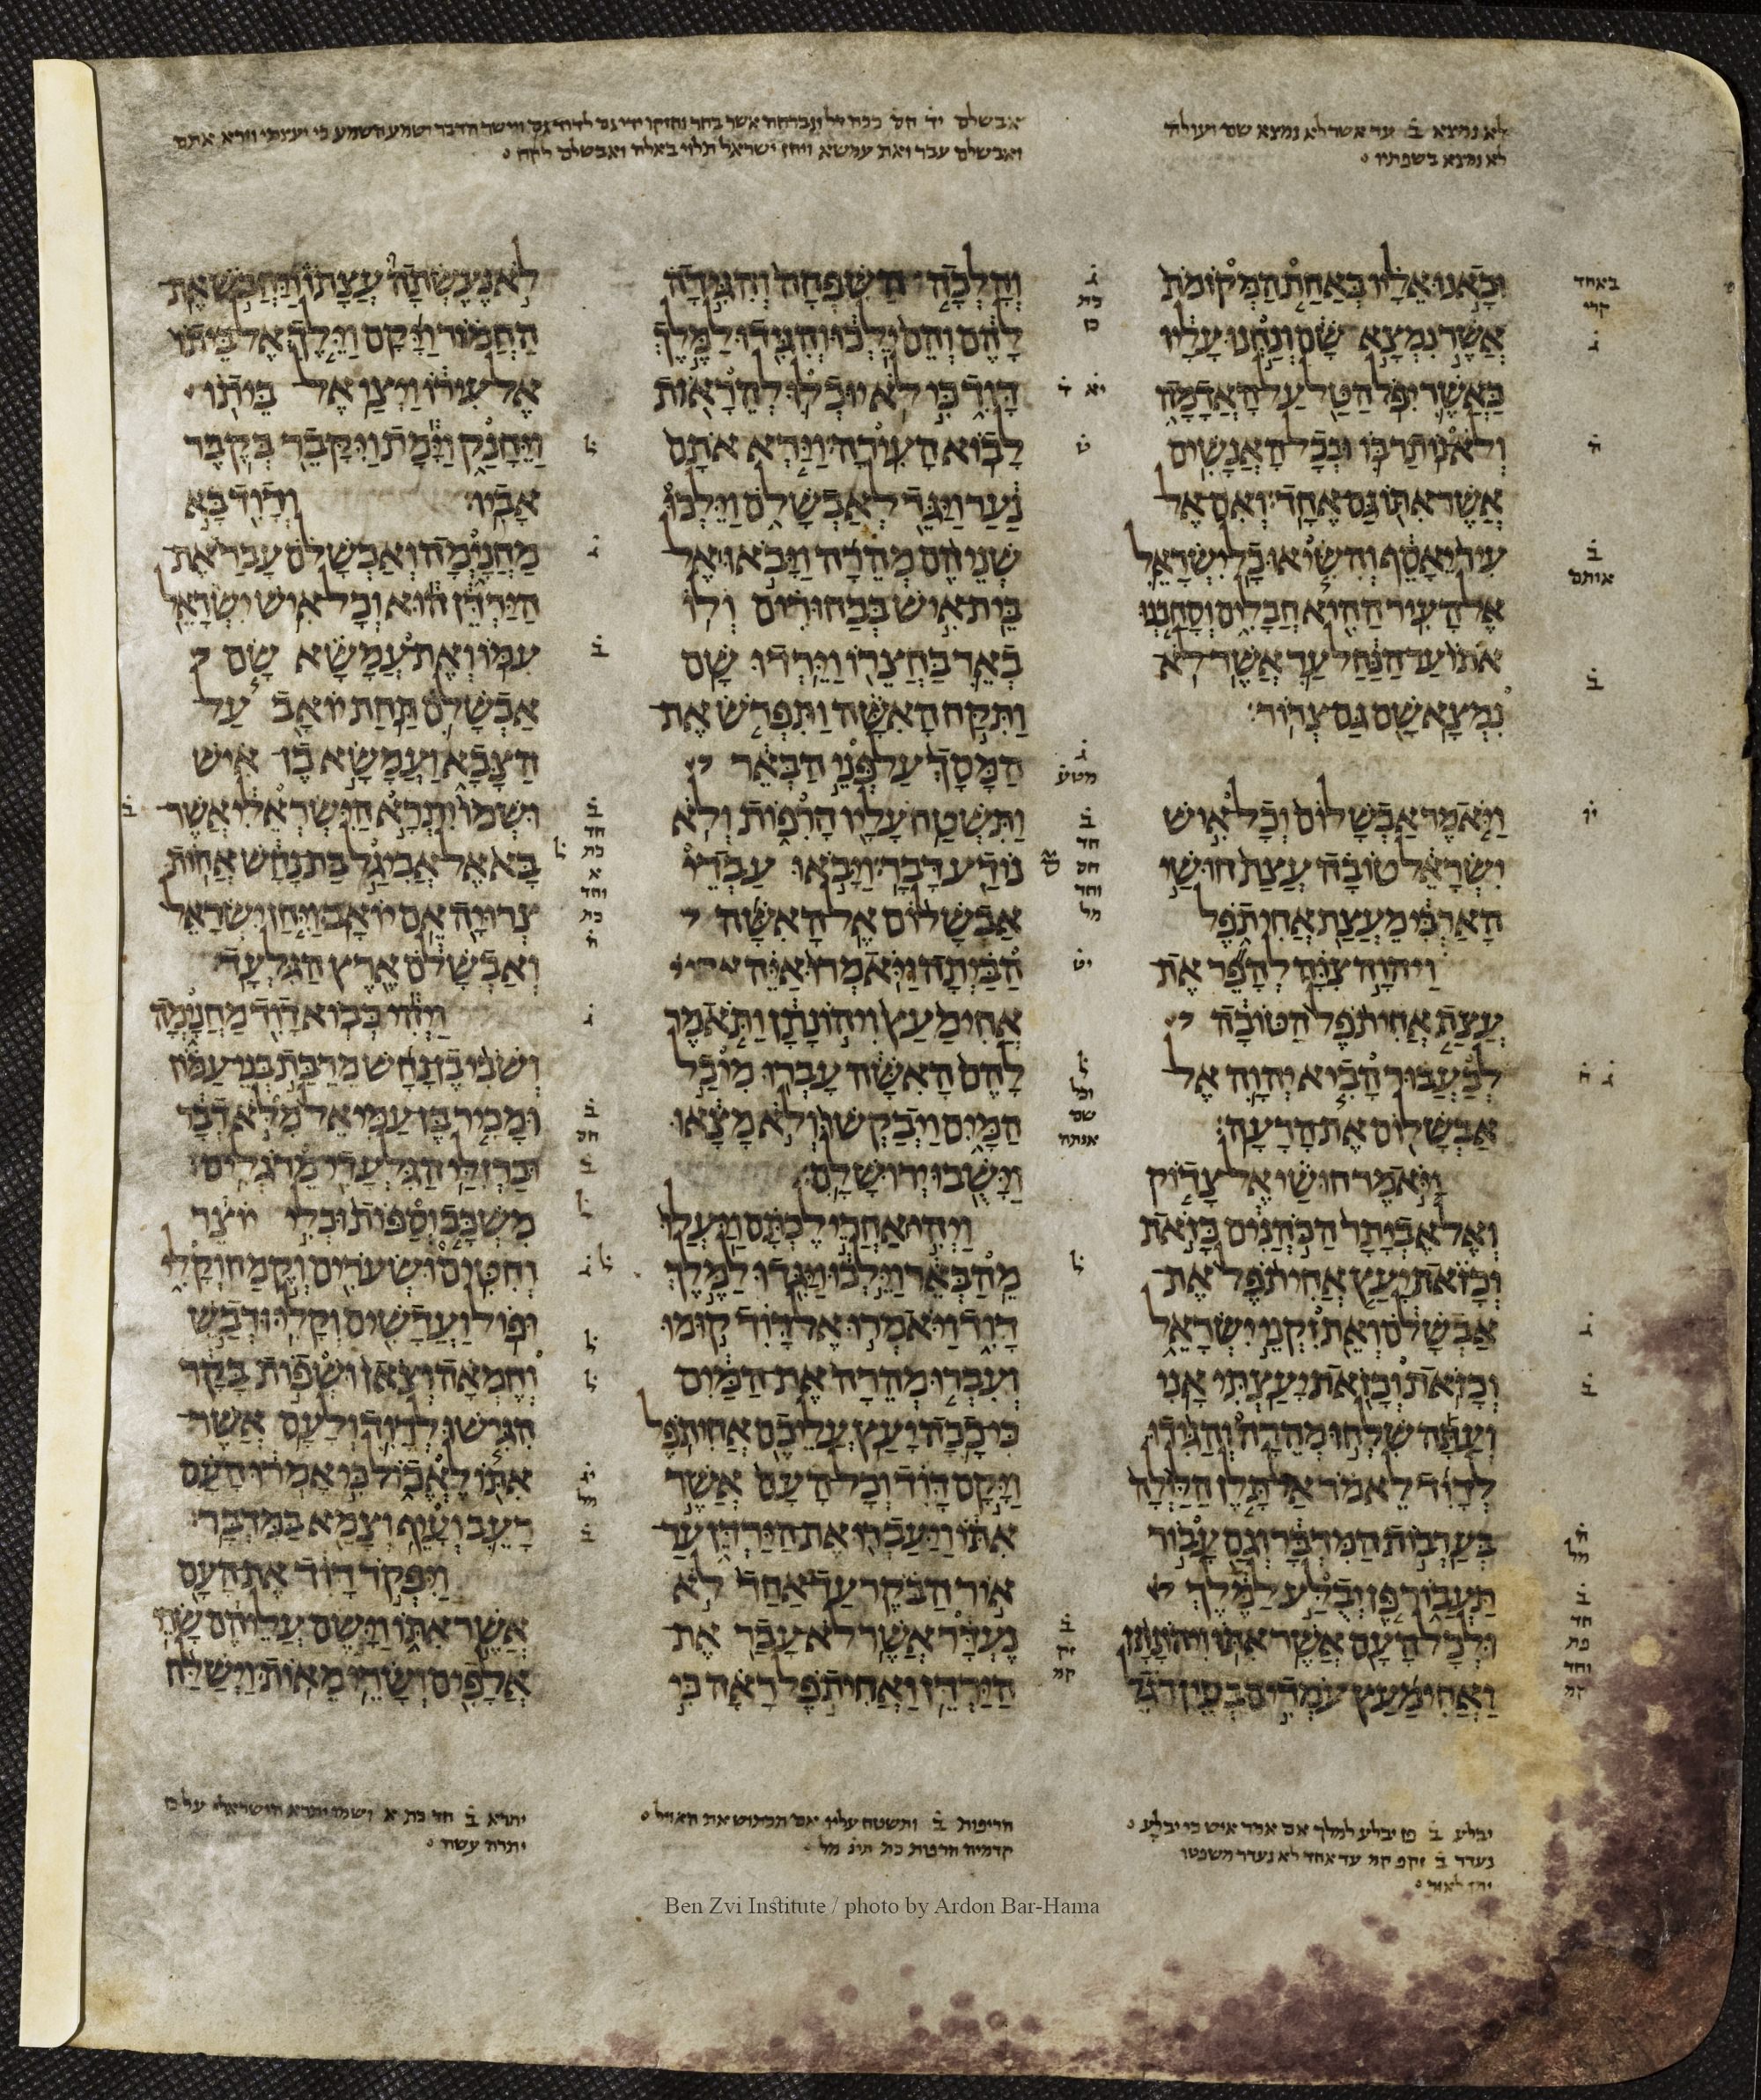 לא נמצא ב עד אשר לא נמצא שם ועולה
לא נמצא בשפתיו
ואבשלם עבר ואת עמשא ויחן ישראל תלוי באלה ואבשלם לקח
ובאנו אליו באחת המקומת
אשר נמצא שם ונחנו עליו
כאשר יפל הטל על האדמה
ולא נותר בו ובכל האנשים
אשר אתו גם אחד ואם אל
עיר יאסף והשיאו כל ישראל
אל העיר ההיא חבלים וסחבנו
אתו עד הנחל עד אשר לא
נמצא שם גם צרור
ויאמר אבשלום וכל איש
ישראל טובה עצת חושי
הארכי מעצת אחיתפל
ויהוה צוה להפר את
עצת אחיתפל הטובה
לבעבור הביא יהוה אל
אבשלום את הרעה
ויאמר חושי אל צדוק
ואל אביתר הכהנים כזאת
וכזאת יעץ אחיתפל את
אבשלם ואת זקני ישראל
וכזאת וכזאת יעצתי אני
ועתה שלחו מהרה והגידו
לדוד לאמר אל תלן הלילה
בערבות המדבר וגם עבור
תעבור פן יבלע למלך
ולכל העם אשר אתו ויהונתן
ואחימעץ עמדים בעין רגל
והלכה השפחה והגידה
להם והם ילכו והגידו למלך
דוד כי לא יוכלו להראות
לבוא העירה וירא אתם
נער ויגד לאבשלם וילכו
שניהם מהרה ויבאו אל
בית איש בבחורים ולו
באר בחצרו וירדו שם
ותקח האשה ותפרש את
המסך על פני הבאר
ותשטח עליו הרפות ולא
נודע דבר ויבאו עבדי
אבשלום אל האשה
הביתה ויאמרו איה
אחימעץ ויהונתן ותאמר
להם האשה עברו מיכל
המים ויבקשו ולא מצאו
וישבו ירושלם
ויהי אחרי לכתם ויעלו
מהבאר וילכו ויגדו למלך
דוד ויאמרו אל דוד קומו
ועברו מהרה את המים
כי ככה יעץ עליכם אחיתפל
ויקם דוד וכל העם אשר
אתו ויעברו את הירדן עד
אור הבקר עד אחד לא
נעדר אשר לא עבר את
הירדן ואחיתפל ראה כי
לא נעשתה עצתו ויחבש את
החמור ויקם וילך אל ביתו
אל עירו ויצו אל ביתו
ויחנק וימת ויקבר בקבר
אביו ודוד בא
מחנימה ואבשלם עבר את
הירדן הוא וכל איש ישראל
עמו ואת עמשא שם
אבשלם תחת יואב על
הצבא ועמשא בן איש
ושמו יתרא הישראלי אשר
בא אל אביגל בת נחש אחות
צרויה אם יואב ויחן ישראל
ואבשלם ארץ הגלעד
ויהי כבוא דוד מחנימה
ושבי בן נחש מרבת בני עמון
ומכיר בן עמיאל מלא דבר
וברזלי הגלעדי מרגלים
משכב וספות וכלי יוצר
וחטים ושערים וקמח וקלי
ופול ועדשים וקלי ודבש
וחמאה וצאן ושפות בקר
הגישו לדוד ולעם אשר
אתו לאכול כי אמרו העם
רעב ועיף וצמא במדבר
ויפקד דוד את העם
אשר אתו וישם עליהם שרי
אלפים ושרי מאות וישלח
יבלע ב פן יבלע למלך אם אמר איש כי יבלע
נעדר ב זקפ קמ עד אחד לא נעדר משפטו
יתן לאור
הריפות ב ותשטח עליו אם תכתוש את האויל
קדמיה הרפות כת תינ מל
יתרא ב חד כת א ושמו יתרא הישראלי
יתרה עשה
Ben Zvi Institute / photo by Ardon Bar-Hama